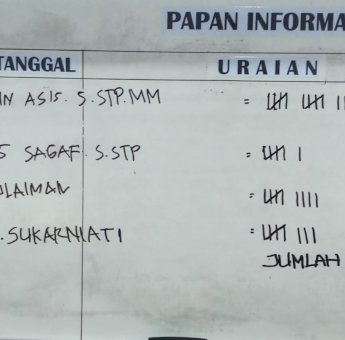 PAPAN INFORMA
TANGGAL URAIAN
IN ASIS. S.STP.MM = 卌 卌 II
S SAGAF. S.STP = 卌 I
LAIMAN = 卌 IIII
. SUKARNIATI = 卌 III
JUMLAH